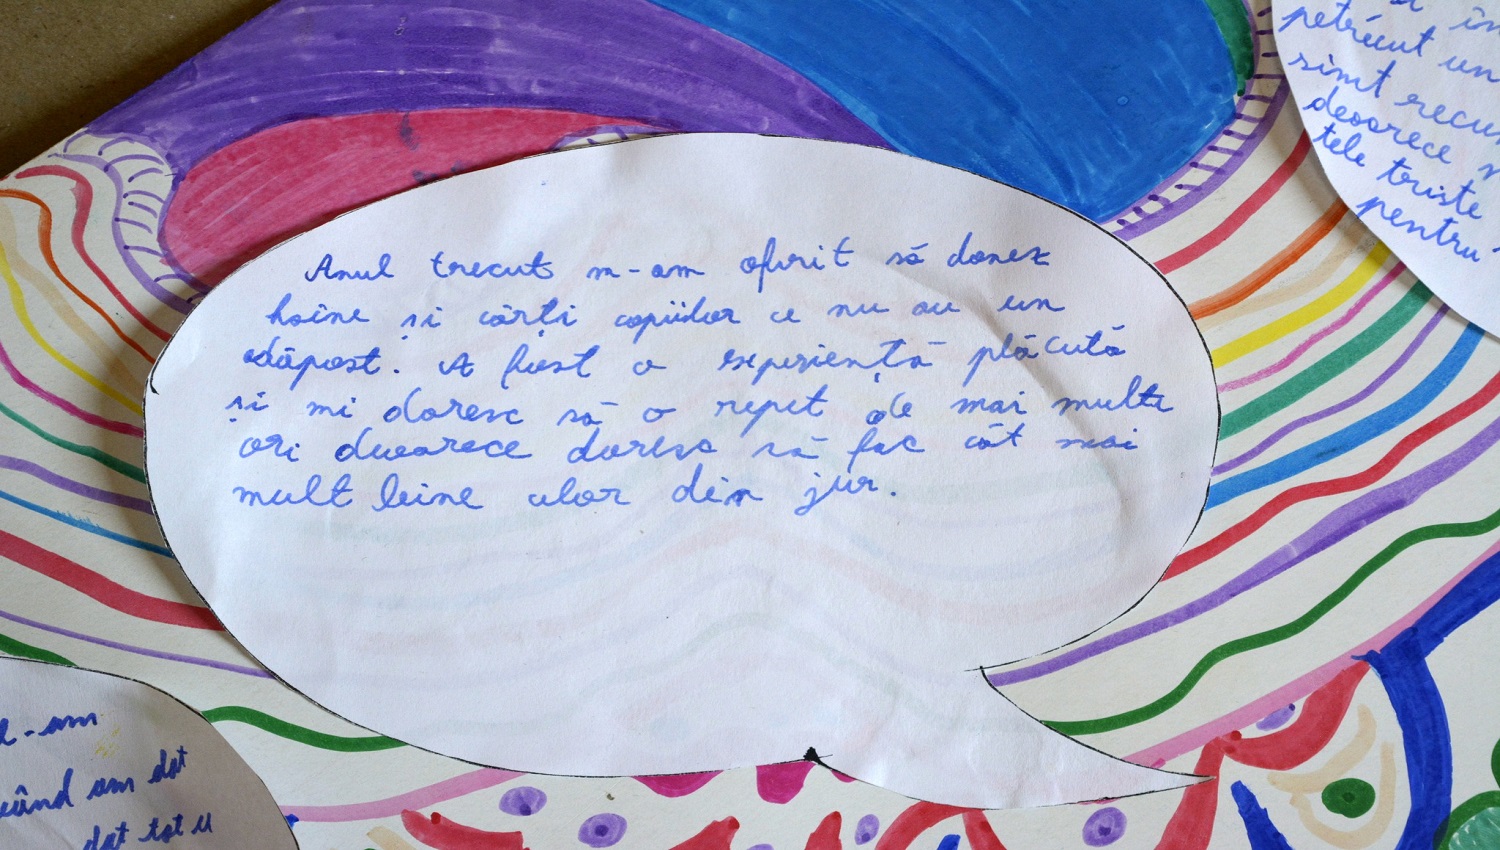 Anul trecut m-am oferit să donez
haine și cărți copiilor ce nu au un
adăpost. A fost o experiență plăcută
și mi doresc să o repet de mai multe
ori deoarece doresc să fac cât mai
mult bine celor din jur.
petrecut un
simt
deoarece
tele triste
pentru
-am
când am dat
dat tot